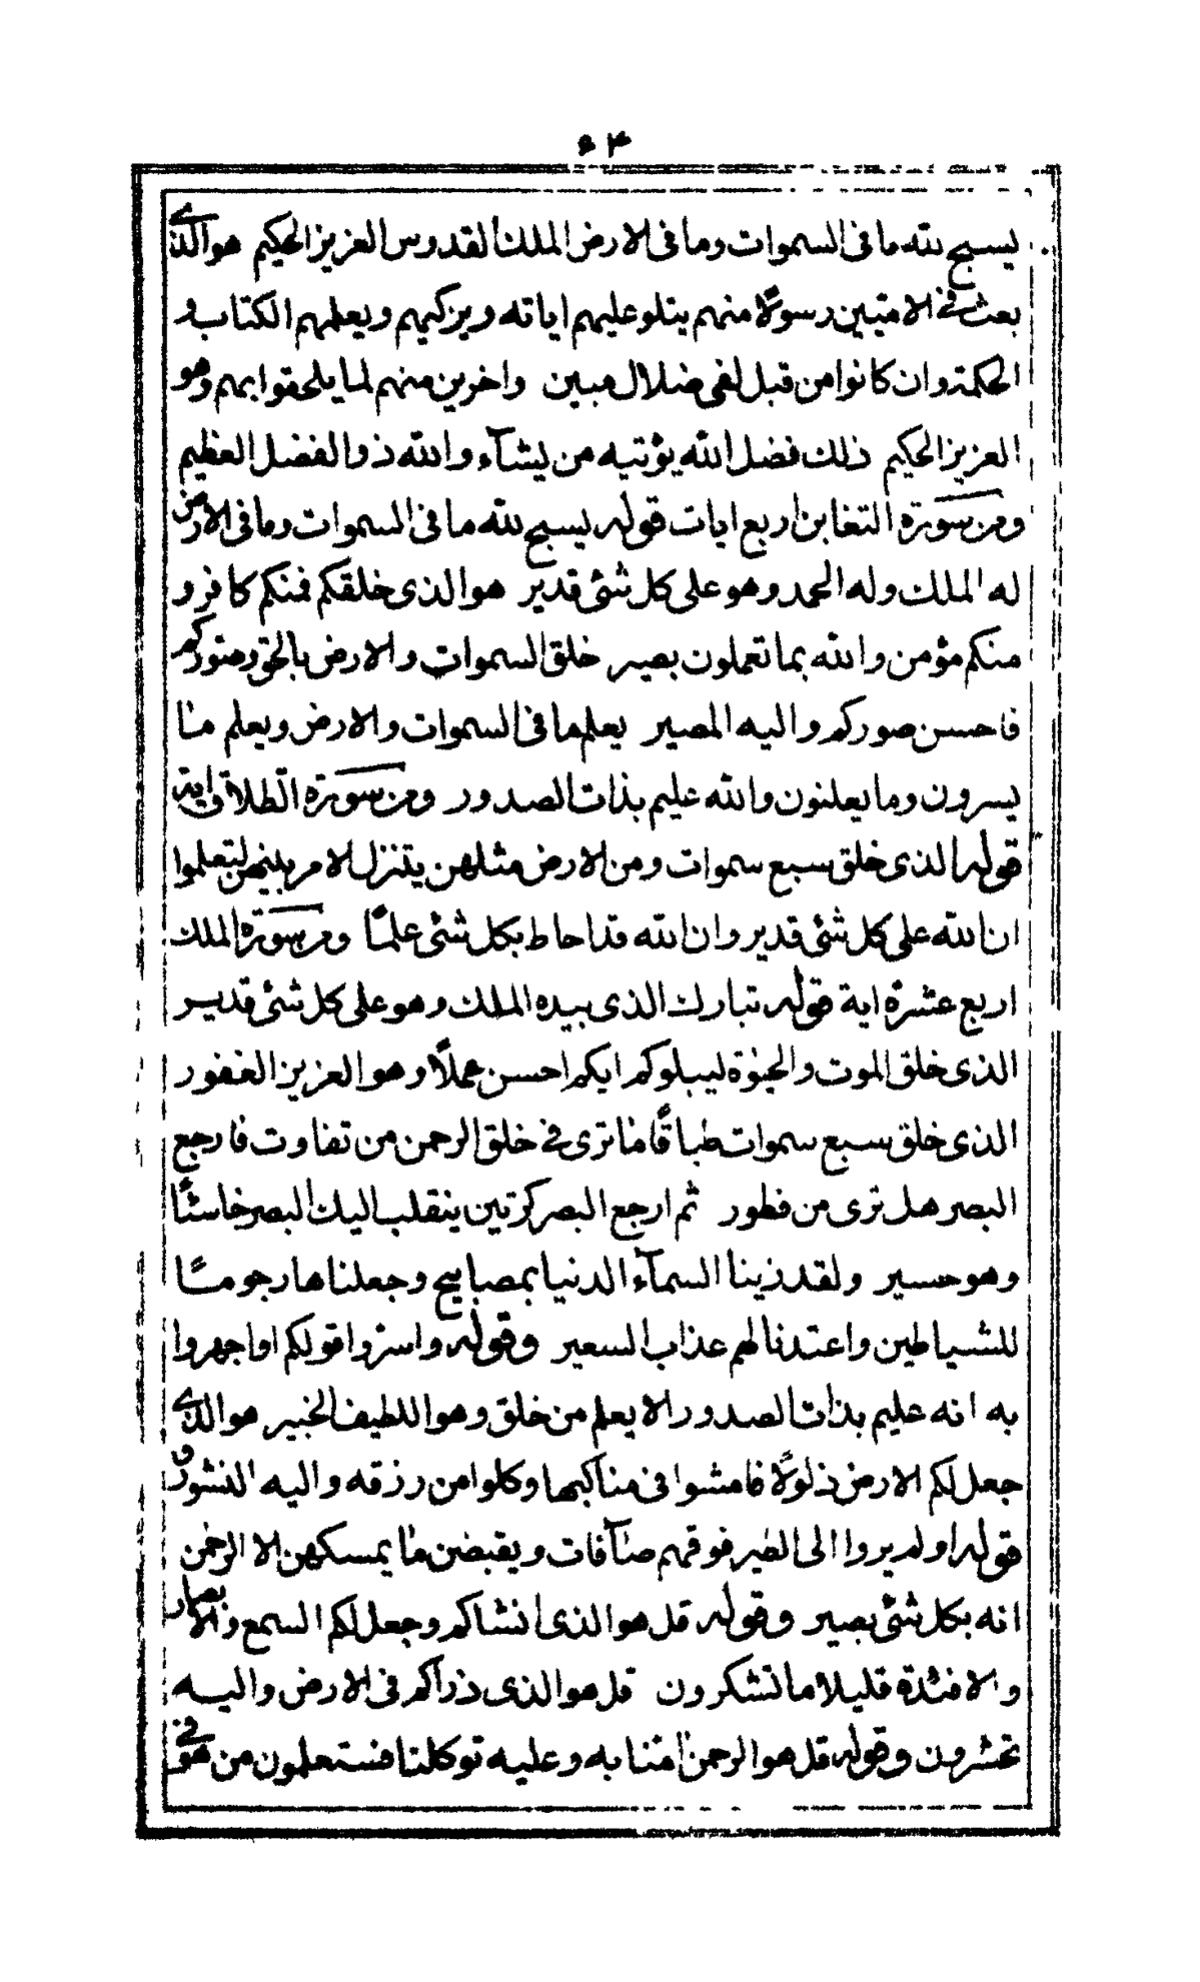 ۶۴
يسبح لله ما فى السموات وما فى الارض الملك القدوس العزيز الحكيم هو الذے
بعث فے الاميّين رسولًا منهم يتلو عليهم اياته ويزكيهم ويعلمهم الكتاب و
الحكمة وان كانوا من قبل لفى ضلال مبين واخرين منهم لما يلحقوا بهم وهو
العزيز الحكيم ذلك فضل الله يؤتيه من يشآء والله ذو الفضل العظيم
ومن سورة التغابن اربع ايات قوله يسبح لله ما فى السموات وما فى الارض
له الملك وله الحمد وهو على كل شئ قدير هو الذى خلقكم فمنكم كافر و
منكم مؤمن والله بما تعملون بصير خلق السموات والارض بالحق وصوركم
فاحسن صوركم واليه المصير يعلم ما فى السموات والارض ويعلم ما
يسرون وما يعلنون والله عليم بذات الصدور ومن سورة الطلاق اية
قوله الذى خلق سبع سموات ومن الارض مثلهن يتنزل الامر بينهن لتعلموا
ان الله على كل شئ قدير وان الله قد احاط بكل شئ علمًا ومن سورة الملك
اربع عشرة اية قوله تبارك الذى بيده الملك وهو على كل شئ قدير
الذى خلق الموت والحيٰوة ليبلوكم ايكم احسن عملًا وهو العزيز الغفور
الذى خلق سبع سموات طباقًا ما ترى فے خلق الرحمن من تفاوت فارجع
البصر هل ترى من فطور ثم ارجع البصر كرتين ينقلب اليك البصر خاسئًا
وهو حسير ولقد زينا السمآء الدنيا بمصابيح وجعلناها رجومًا
للشياطين واعتدنا لهم عذاب السعير وقوله واسرّوا قولكم او اجهروا
به انه عليم بذات الصدور الا يعلم من خلق وهو اللطيف الخبير هو الذے
جعل لكم الارض ذلولًا فامشوا فى مناكبها وكلوا من رزقه واليه النشور و
قوله اولم يروا الى الطير فوقهم صآفات ويقبضن ما يمسكهن الا الرحمٰن
انه بكل شئ بصير وقوله قل هو الذى انشاكم وجعل لكم السمع والابصار
والافئدة قليلا ما تشكرون قل هو الذى ذراكم فى الارض واليه
تحشرون وقوله قل هو الرحمن اٰمنا به وعليه توكلنا فستعلمون من هو فے